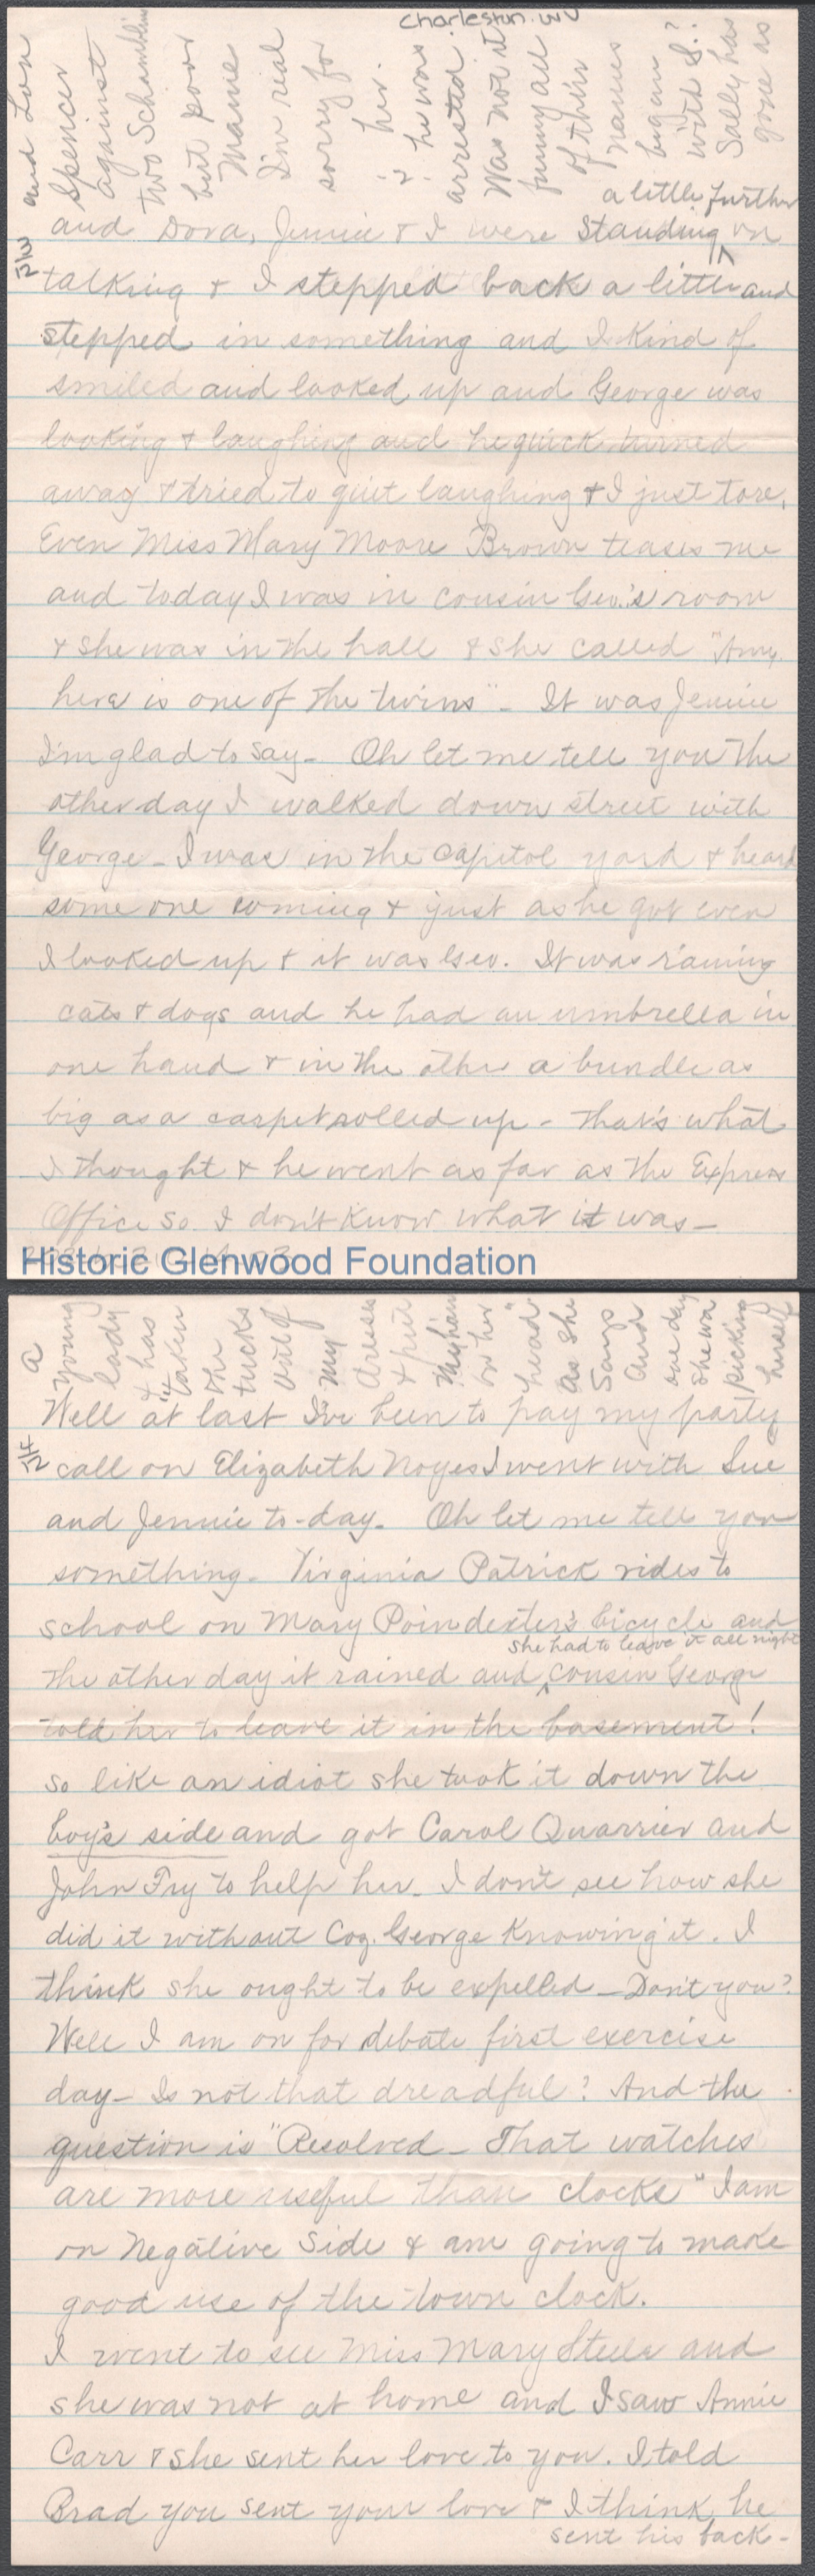 Charleston. W V
and Lon
Spencer
against
two Schamblin
but poor
Mamie
I'm real
sorry for
her.
he was
arrested
Was not it
funny all
of their
names
began
with S.?
Sally has
gone as
a little further
and Dora, Jennie & I were standing on
talking & I stepped back a little and
stepped in something and I kind of
smiled and looked up and George was
looking & laughing and he quick turned
away & tried to quit laughing & I just tore.
Even Miss Mary Moore Brown teases me
and today I was in cousin Geo.'s room
& she was in the hall & she called "Amy
here is one of the twins" - It was Jennie
I'm glad to say - Oh let me tell you the
other day I walked down street with
George - I was in the Capitol yard & heard
some one coming & just as he got even
I looked up & it was Geo. It was raining
cats & dogs and he had an umbrella in
one hand & in the other a bundle as
big as a carpet rolled up - That's what
I thought & he went as far as the Express
Office so I don't know what it was -
Historic Glenwood Foundation
a
young
lady
& has
taken
the
tucks
out of
my
dresses
& put
my hair
on her
"head"
as she
says
and
one day
she was
picking
herself
Well at last I've been to pay my party
call on Elizabeth Noyes I went with Sue
and Jennie to-day. Oh let me tell you
something - Virginia Patrick rides to
school on Mary Poindexter's bicycle and
she had to leave it all night
the other day it rained and cousin George
told her to leave it in the basement!
so like an idiot she took it down the
boy's side and got Carol Quarrier and
John Fry to help her. I don't see how she
did it without Coz. George knowing it. I
think she ought to be expelled - Don't you?
Well I am on for debate first exercise
day - Is not that dreadful? And the
question is "Resolved - That watches
are more useful than clocks" I am
on Negative Side & am going to make
good use of the town clock.
I went to see Miss Mary Steele and
she was not at home and I saw Annie
Carr & she sent her love to you. I told
Brad you sent your love & I think he
sent his back -